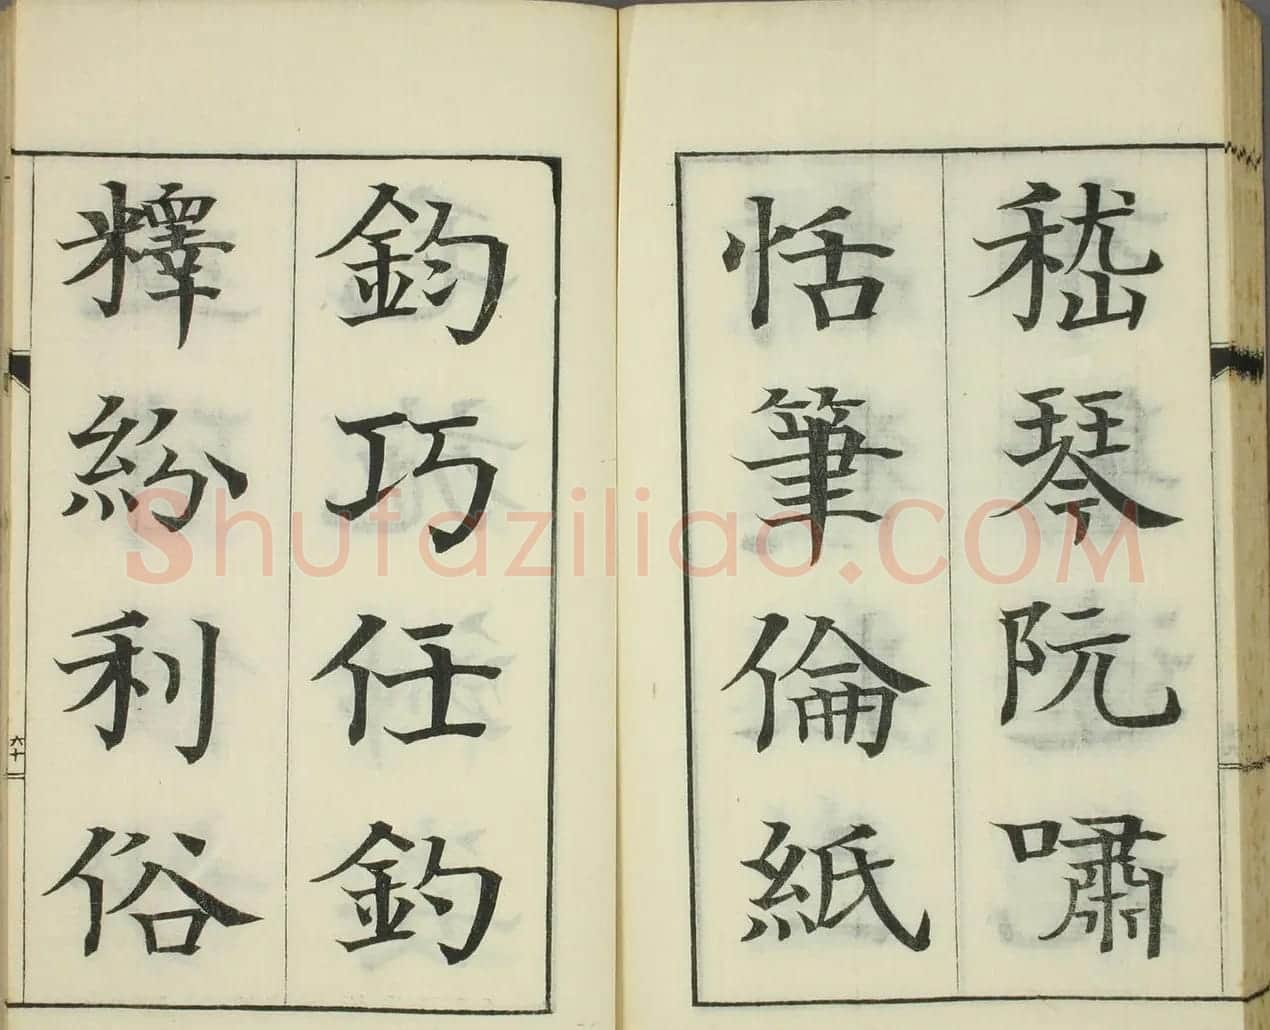 嵇琴阮嘯
恬筆倫紙
鈞巧任釣
釋紛利俗
六十
Shufaziliao.COM